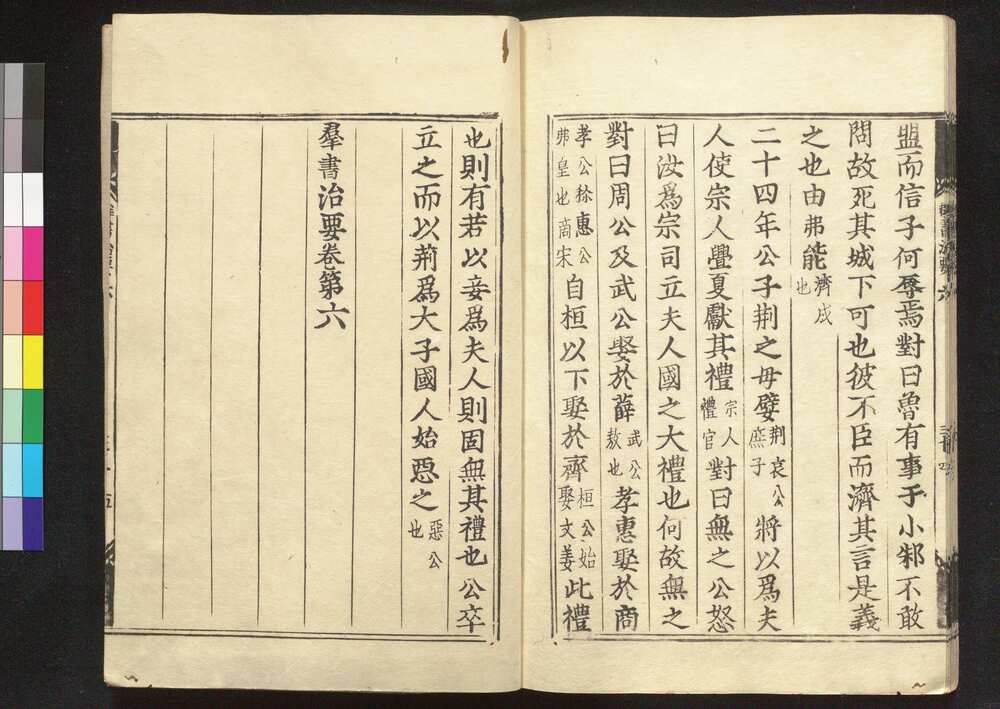 盟而信子何辱焉對曰魯有事于小邾不敢
問故死其城下可也彼不臣而濟其言是義
之也由弗能濟成也
二十四年公子荊之母嬖荊哀公庶子將以爲夫
人使宗人舋夏獻其禮宗人禮官對曰無之公怒
曰汝爲宗司立夫人國之大禮也何故無之
對曰周公及武公娶於薛武公敖也孝惠娶於商
孝公稱惠公弗皇也商宋自桓以下娶於齊桓公始娶文姜此禮
也則有若以妾爲夫人則固無其禮也公卒
立之而以荊爲大子國人始惡之惡公也
羣書治要卷第六